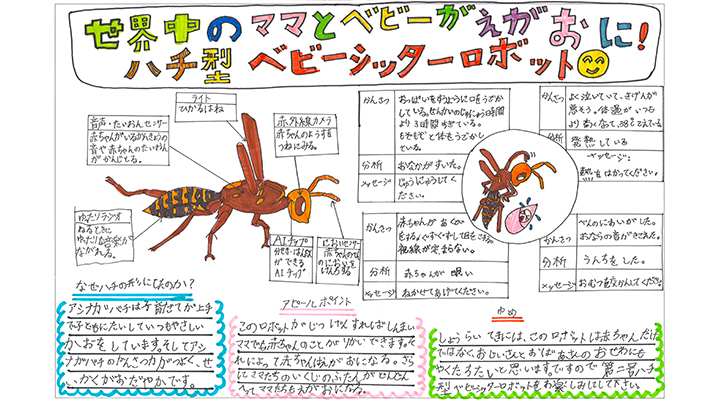 世界中のママとベビーがえがおに!
ハチ型 ベビーシッターロボット
ライト
ひかるはね
音声・たいおんセンサー
赤ちゃんがいるかんきょうの
音や赤ちゃんのたいおん
がかんじとる。
赤外線カメラ
赤ちゃんのようすを
つねにみる。
ゆったりラジオ
ねるときに
ゆったりな音楽が
ながれる。
AIチップ
分せき・はんだん
ができる
AIチップ
においセンサー
赤ちゃんの
においを
かんちする
かんさつ
おっぱいをすうように口をうごか
している。ぜんかいのじゅにゅう時間
より3時間すぎている。
もぞもぞと体もうごかし
ている。
分析
おなかがすいた。
メッセージ
じゅにゅうしてく
ださい。
かんさつ
よく泣いていて、きげんが
悪そう。体温がいつも
より高くなって、38℃こえている
分析
発熱している
メッセージ:
熱をはかってください。
かんさつ
赤ちゃんがあくび
をする。ぐずぐずして目をこする。
視線が定まらない。
分析
赤ちゃんが眠い
メッセージ
ねかせてあげてください。
かんさつ
べんのにおいがした。
おならの音がきこえた。
分析
うんちをした。
メッセージ
おむつを交かんしてください。
なぜハチの形にしたのか?
アシナガバチは子育てが上手
で子どもにたいしていつもやさしい
かおをしています。そしてアシ
ナガバチのだんさつ力がつよく、せ
いかくがおだやかです。
アピールポイント
このロボットがじつげんすればしんまい
ママでも赤ちゃんのことがりかいできます。そ
れによって赤ちゃんはえがおになる。さら
にママたちのいくじのふたんがどんどんへ
ってママたちもえがおになる。
ゆめ
しょうらいてきには、このロボットは赤ちゃんだけ
ではなく、おじいさんとおばあさんのおせわにも
やくだちたいと思います。ですので第二号ハチ
型ベビーシッターロボットをお楽しみにして下さい。